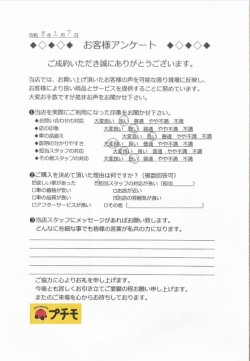 ◆◇◆◇◆ お客様アンケート ◆◇◆◇◆
ご成約いただき誠にありがとうございます。
当店では、お買い上げ頂いたお客様の声を可能な限り現場に反映し、
お客様により良い商品とサービスを提供することに努めています。
大変お手数ですが是非お声をお聞かせ下さい。
❶当店を実際にご利用になった印象をお聞かせ下さい。
●お問い合わせの対応 大変良い 良い 普通 やや不満 不満
●店の印象 大変良い 良い 普通 やや不満 不満
●車の品揃え 大変良い 良い 普通 やや不満 不満
●説明の分かりやすさ 大変良い 良い 普通 やや不満 不満
●担当スタッフの対応 大変良い 良い 普通 やや不満 不満
●その他スタッフの対応 大変良い 良い 普通 やや不満 不満
❷ご購入を決めて頂いた理由は何ですか？（複数回答可）
欲しい車があった □担当スタッフの対応が良い（担当 ）
□車の価格が安い □お店が近い
□車の品質が良い □お店の雰囲気が良い
□アフターサービスが良い □その他（ ）
❸当店スタッフにメッセージがあればお願い致します。
どんなに些細な事でも皆様の言葉が元気の源になります！
ご協力に心よりお礼を申し上げます。
今後とも宜しくお引き立てご愛顧の程お願い申し上げます。
またのご来場を心からお待ちしております。
プチモ